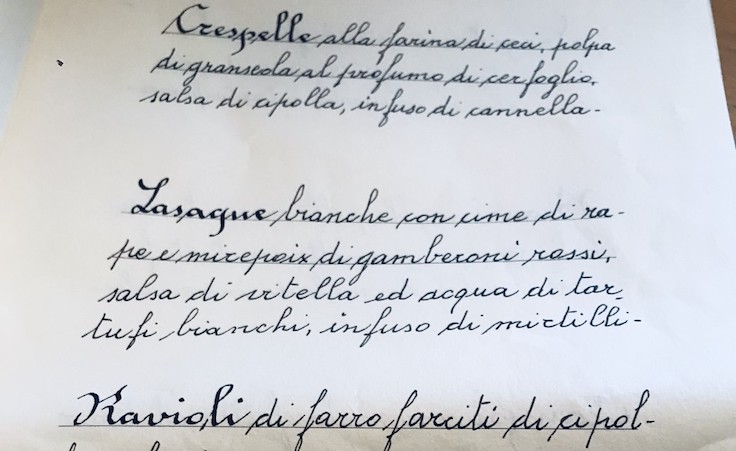 Crespelle alla farina di ceci, polpa
di granseola al profumo di cerfoglio,
salsa di cipolla, infuso di cannella-
Lasagne bianche con cime di ra-
pe e mirepoix di gamberoni rossi,
salsa di vitella ed acqua di tar-
tufi bianchi, infuso di mirtilli-
Ravioli di farro farciti di cipol-